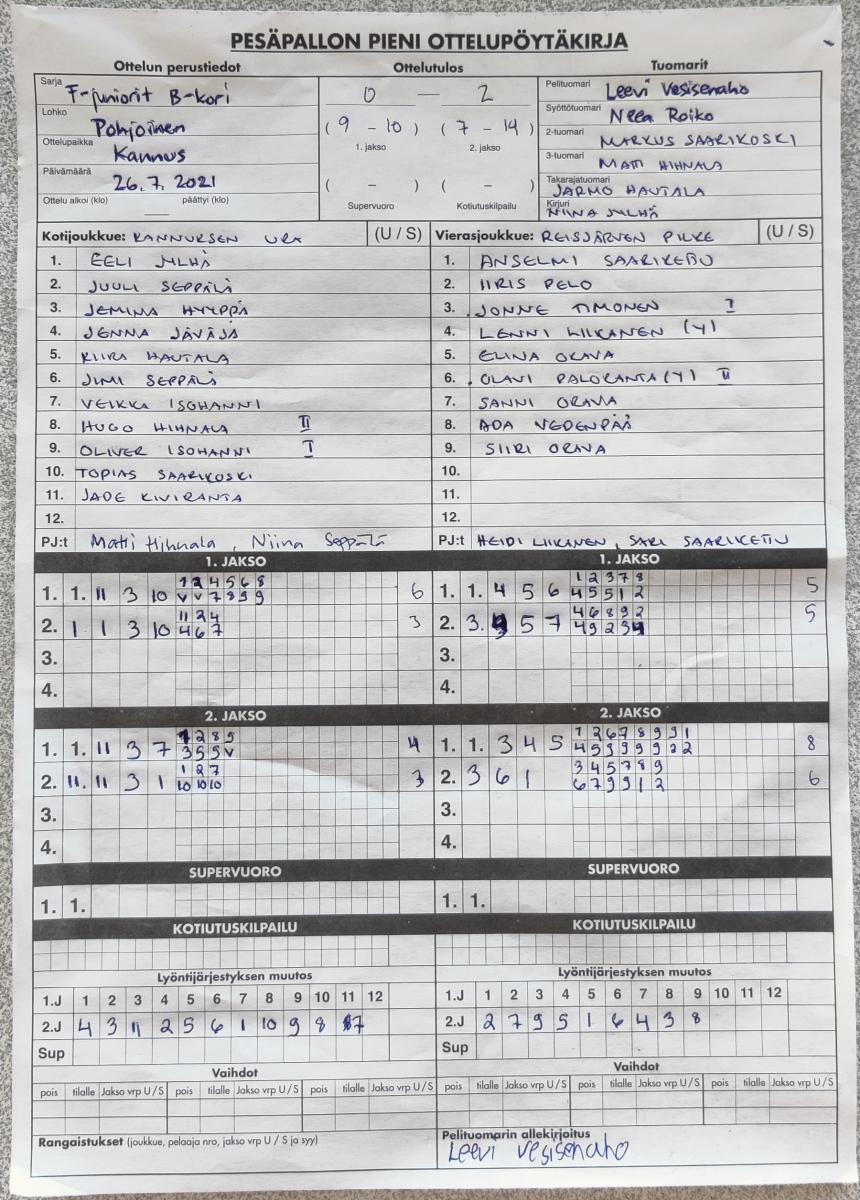 PESÄPALLON PIENI OTTELUPÖYTÄKIRJA
Ottelun perustiedot Ottelutulos Tuomarit
Sarja F-juniorit B-kori
Lohko Pohjoinen
Ottelupaikka Kannus
Päivämäärä 26.7.2021
Ottelu alkoi (klo) — päättyi (klo)
0 — 2
(9 - 10) (7 - 14)
1. jakso 2. jakso
( - ) ( - )
Supervuoro Kotiutuskilpailu
Pelituomari Leevi Vesisenaho
Syöttötuomari Neea Roiko
2-tuomari MARKUS SAARIKOSKI
3-tuomari MATTI HIHNALA
Takarajatuomari JARMO HAUTALA
Kirjuri NIINA JYLHÄ
Kotijoukkue: KANNUKSEN URA (U / S) Vierasjoukkue: REISJÄRVEN PILKE (U / S)
1. EELI JYLHÄ 1. ANSELMI SAARIKETTU
2. JUULI SEPPÄLÄ 2. IIRIS PELO
3. JEMINA HYYPPÄ 3. JONNE TIMONEN I
4. JENNA JÄVÄJÄ 4. LENNI LIIKANEN (Y)
5. KIIRA HAUTALA 5. ELINA ORAVA
6. JIMI SEPPÄLÄ 6. OLAVI PALORANTA (Y) II
7. VEIKKA ISOHANNI 7. SANNI ORAVA
8. HUGO HIHNALA II 8. ADA VEDENPÄÄ
9. OLIVER ISOHANNI I 9. SIIRI ORAVA
10. TOPIAS SAARIKOSKI 10.
11. JADE KIVIRANTA 11.
12. 12.
PJ:t Matti Hihnala, Niina Seppälä PJ:t HEIDI LIIKANEN, SARI SAARIKETTU
1. JAKSO 1. JAKSO
1 2 4 5 6 8 1 2 3 7 8
1. 1. 11 3 10 V V 7 8 9 9 6 1. 1. 4 5 6 4 5 5 1 2 5
11 2 4 4 6 8 9 2
2. 1 1 3 10 4 6 7 3 2. 3. 4 5 7 4 9 2 3 4 5
3. 3.
4. 4.
2. JAKSO 2. JAKSO
1 2 8 9 1 2 6 7 8 9 9 1
1. 1. 11 3 7 3 5 5 V 4 1. 1. 3 4 5 4 5 9 9 9 9 2 2 8
1 2 7 3 4 5 7 8 9
2. 11. 11 3 1 10 10 10 3 2. 3 6 1 6 7 9 9 1 2 6
3. 3.
4. 4.
SUPERVUORO SUPERVUORO
1. 1. 1. 1.
KOTIUTUSKILPAILU KOTIUTUSKILPAILU
Lyöntijärjestyksen muutos Lyöntijärjestyksen muutos
1.J 1 2 3 4 5 6 7 8 9 10 11 12 1.J 1 2 3 4 5 6 7 8 9 10 11 12
2.J 4 3 11 2 5 6 1 10 9 8 7 2.J 2 7 9 5 1 6 4 3 8
Sup Sup
Vaihdot Vaihdot
pois tilalle Jakso vrp U / S pois tilalle Jakso vrp U / S pois tilalle Jakso vrp U / S pois tilalle Jakso vrp U / S pois tilalle Jakso vrp U / S pois tilalle Jakso vrp U / S
Rangaistukset (joukkue, pelaaja nro, jakso vrp U / S ja syy) Pelituomarin allekirjoitus
Leevi Vesisenaho